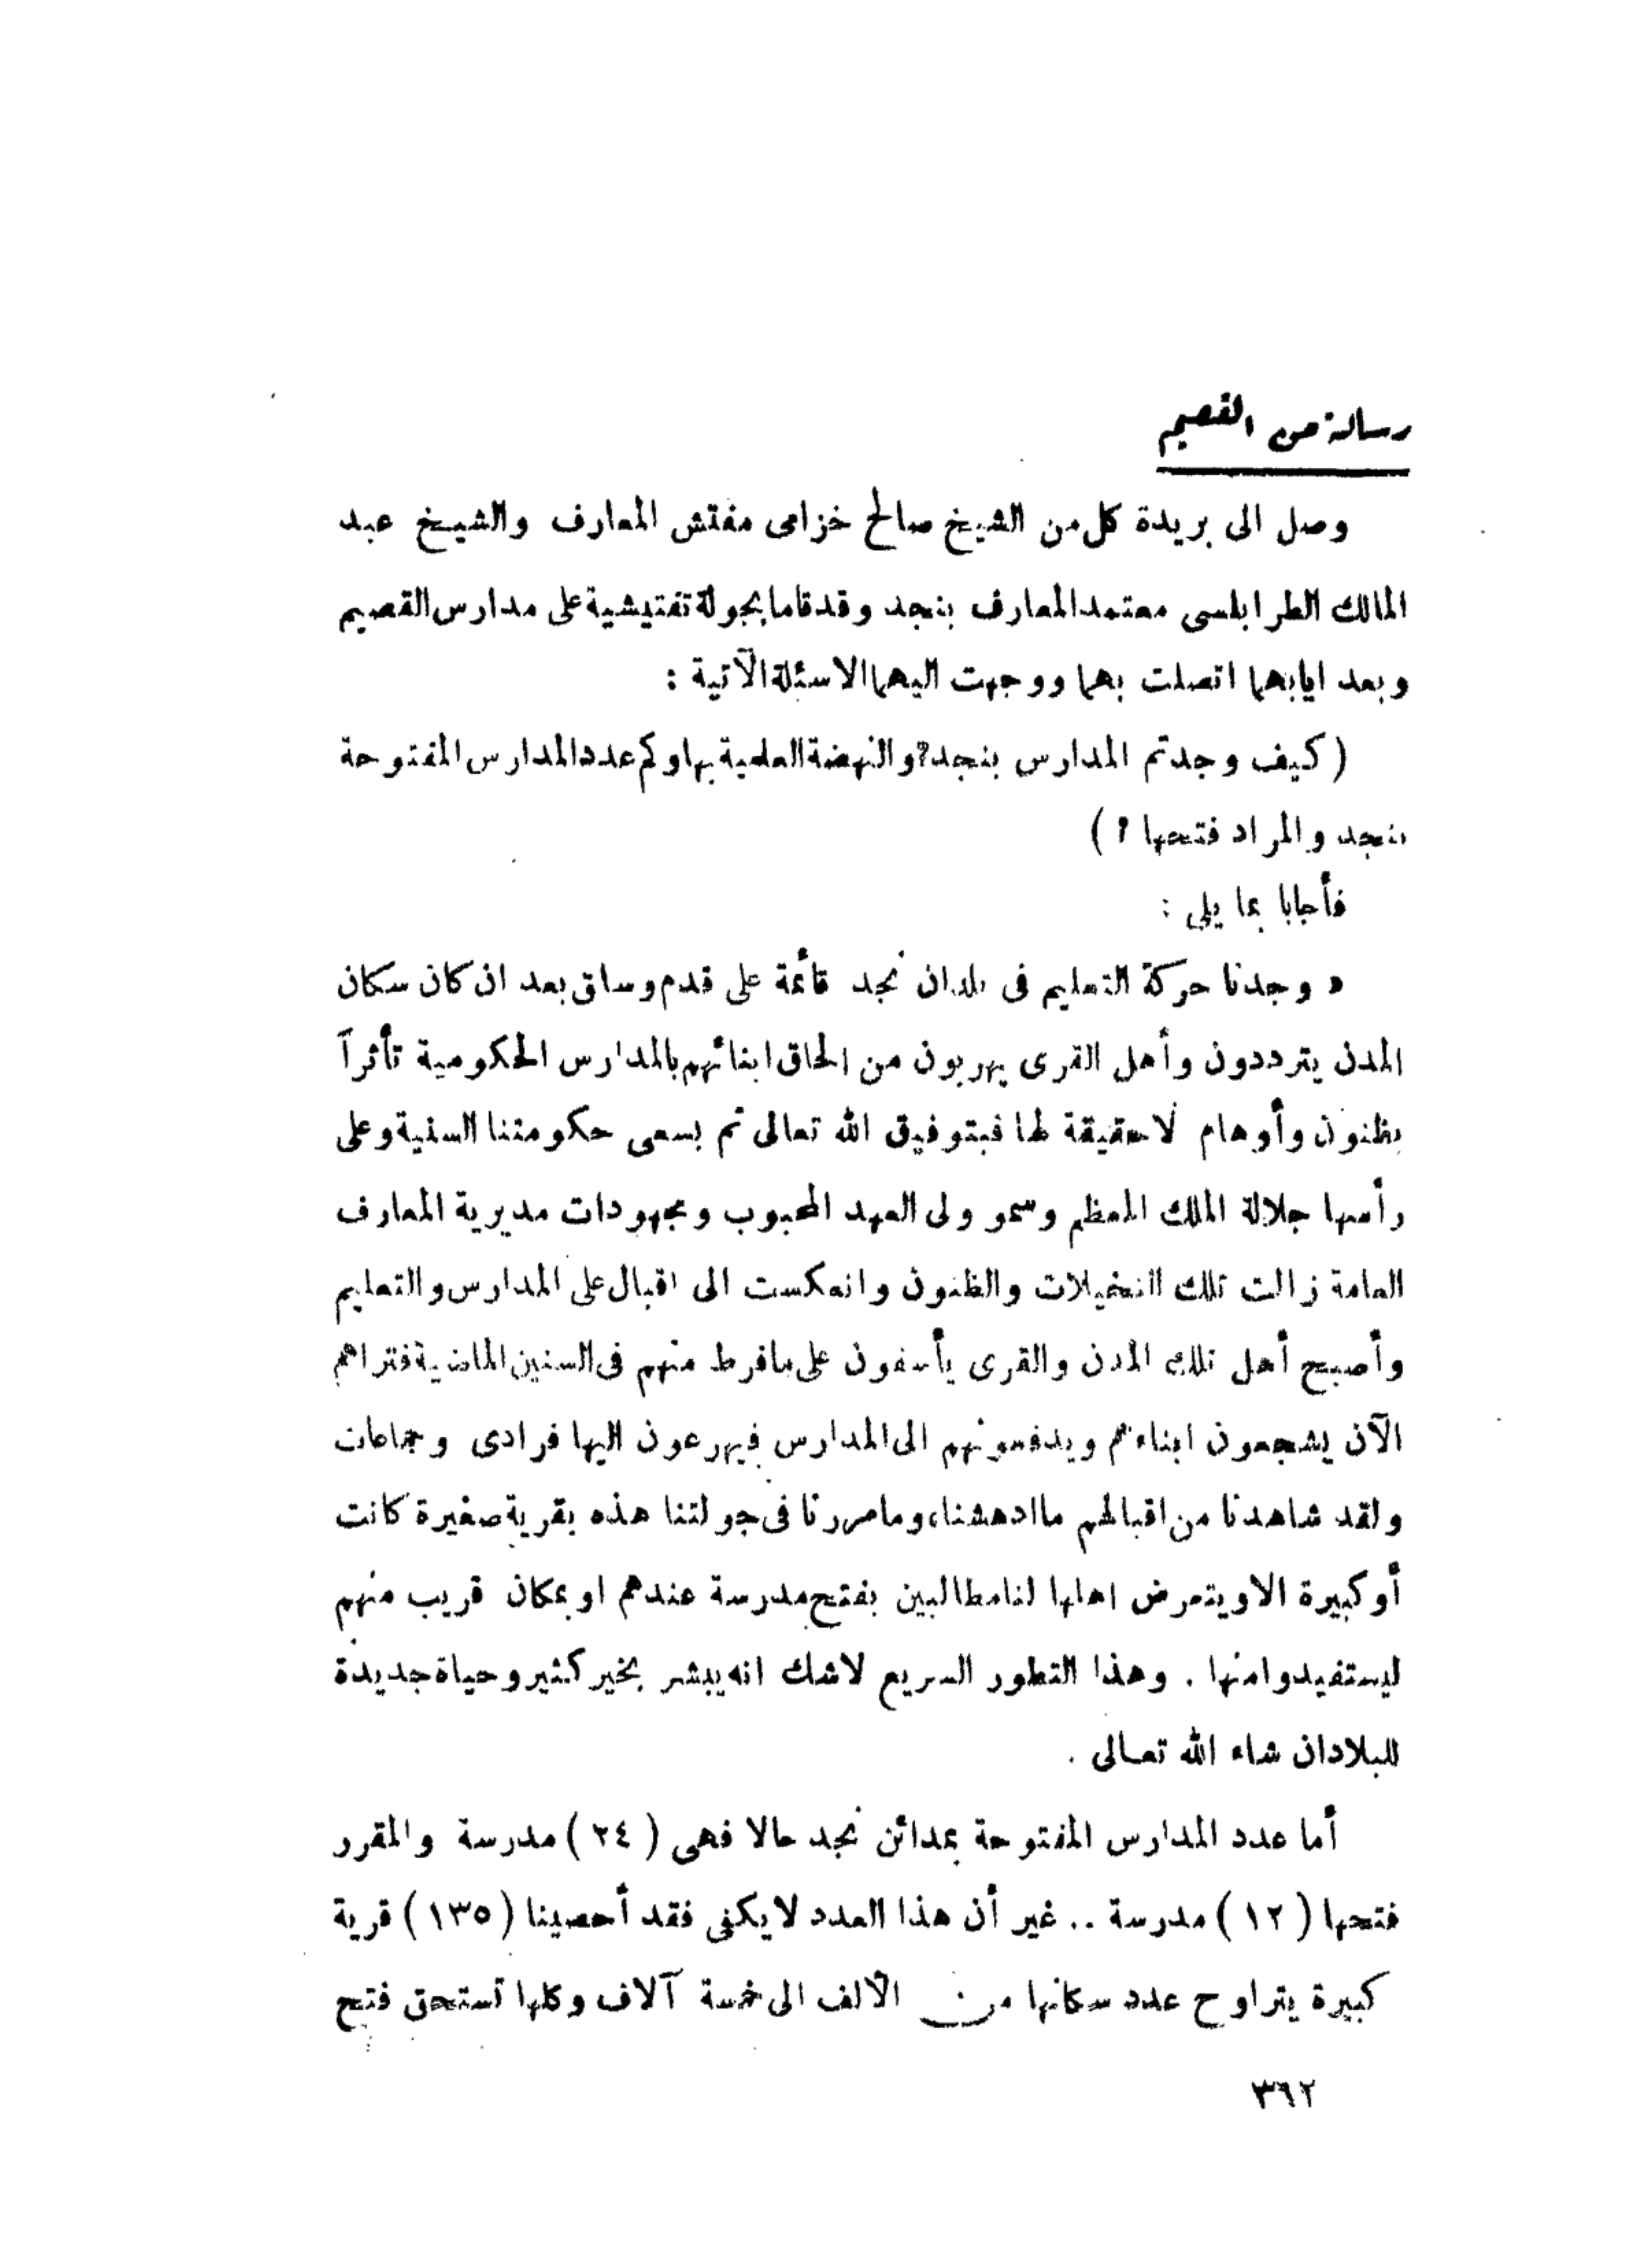 رسالة من القصيم
وصل الى بريدة كل من الشيخ صالح خزامى مفتش المعارف والشيخ عبد
المالك الطرابلسى معتمد المعارف بنجد وقد قاما بجولة تفتيشية على مدارس القصيم
وبعد ايابهما اتصلت بهما ووجهت اليهما الاسئلة الآتية :
( كيف وجدتم المدارس بنجد؟ والنهضة العلمية بها وكم عدد المدارس المفتوحة
بنجد والمراد فتحها ؟ )
فأجابا بما يلى :
« وجدنا حركة التعليم فى بلدان نجد قائمة على قدم وساق بعد ان كان سكان
المدن يترددون وأهل القرى يهربون من الحاق ابنائهم بالمدارس الحكومية تأثراً
بظنون وأوهام لا حقيقة لها فبتوفيق الله تعالى ثم بسعى حكومتنا السنية وعلى
رأسها جلالة الملك المعظم وسمو ولى العهد المحبوب ومجهودات مديرية المعارف
العامة زالت تلك التخيلات والظنون وانعكست الى اقبال على المدارس والتعليم
وأصبح أهل تلك المدن والقرى يأسفون على مافرط منهم فى السنين الماضية فتراهم
الآن يشجعون ابناءهم ويدفعونهم الى المدارس فيهرعون اليها فرادى وجماعات
ولقد شاهدنا من اقبالهم ما ادهشنا، وما مررنا فى جولتنا هذه بقرية صغيرة كانت
أو كبيرة الا ويتعرض اهلها لنا مطالبين بفتح مدرسة عندهم او بمكان قريب منهم
ليستفيدوا منها . وهذا التطور السريع لاشك انه يبشر بخير كثير وحياة جديدة
للبلاد ان شاء الله تعالى .
أما عدد المدارس المفتوحة بمدائن نجد حالا فهى ( ٢٤ ) مدرسة والمقرر
فتحها ( ١٢ ) مدرسة .. غير أن هذا العدد لا يكفى فقد أحصينا ( ١٣٥ ) قرية
كبيرة يتراوح عدد سكانها من الألف الى خمسة آلاف وكلها تستحق فتح
٣٦٢